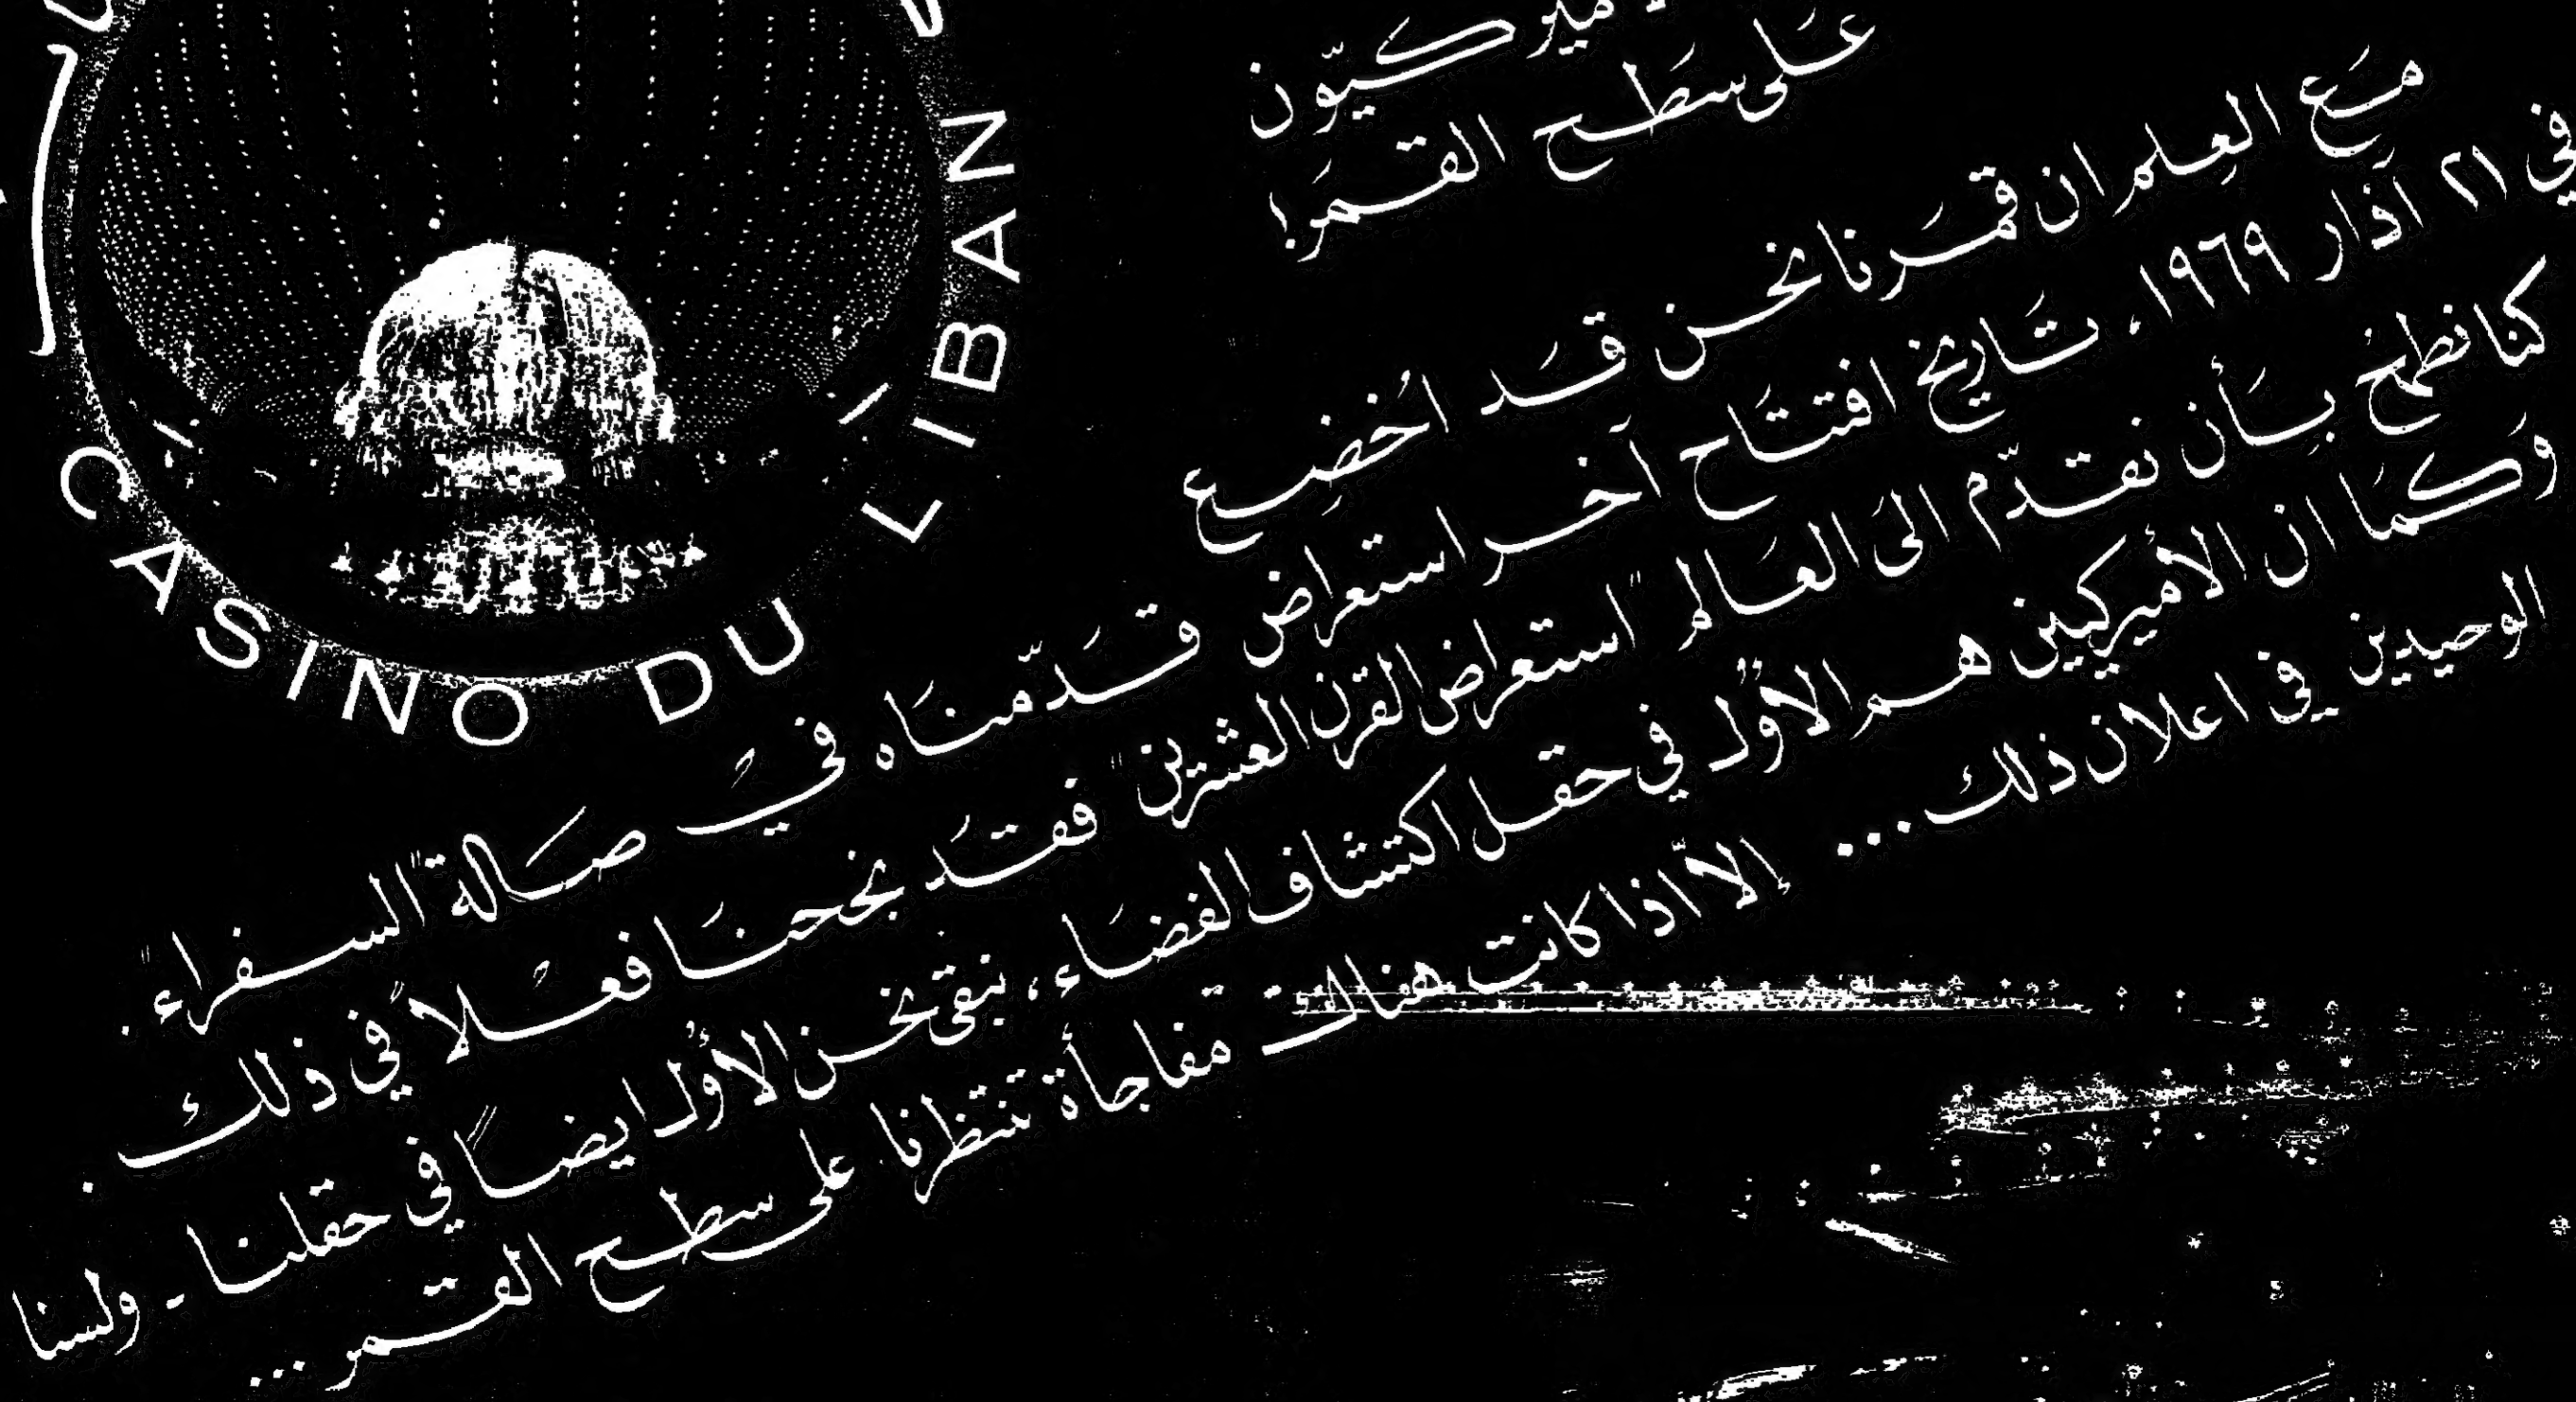 CASINO DU LIBAN
ميركيّون
عَلى سَطح القمَر!
مَع العِلم ان قمَرنا نحن قَد اُخضِع
في ٢١ آذار ١٩٦٩، تَاريخ افتتَاح آخر استعراض قَدّمنَاه في صَالة "السفراء".
كنا نطمحُ بَأن نقدّم الىَ العَالم "استعراض القرن العشرين" فقَد نجحنَا فعْلاً في ذلك.
وَكمَا ان الأميركيين هم الأوّل في حقل اكتشاف الفضَاء، نبقى نحن الأوُل ايضاً في حقلنا - ولسنا
الوحيدين في اعلان ذلك... إلاّ اذا كانت هناك مفاجأة تنتظرنا على سطح القمر...